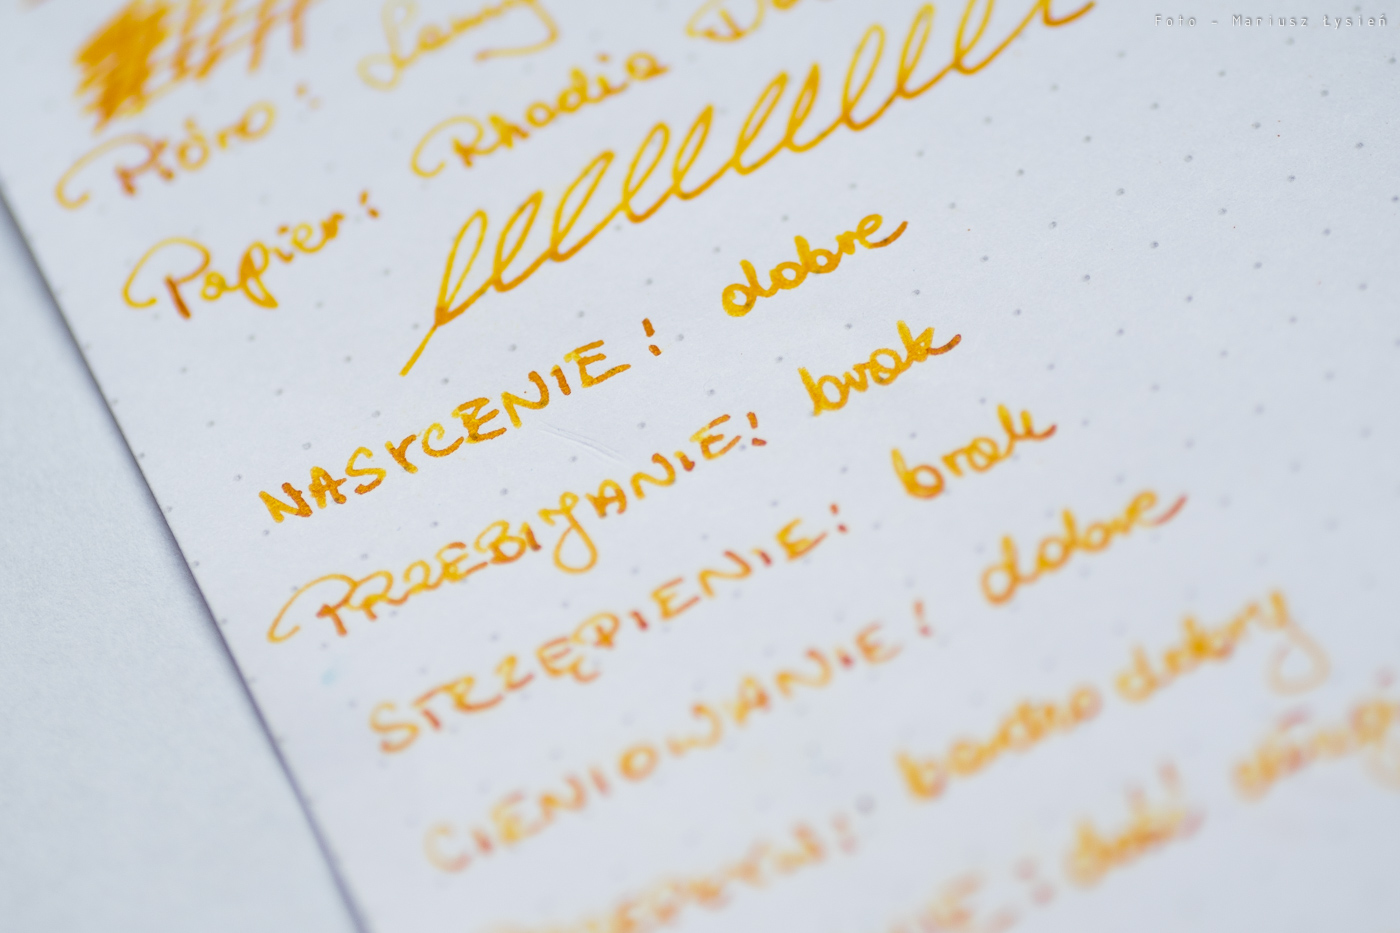 Foto - Mariusz Łysień
Pióro: Lamy
Papier: Rhodia
NASYCENIE: dobre
PRZEBIJANIE: brak
STRZĘPIENIE: brak
CIENIOWANIE: dobre
bardzo dobry
: dość